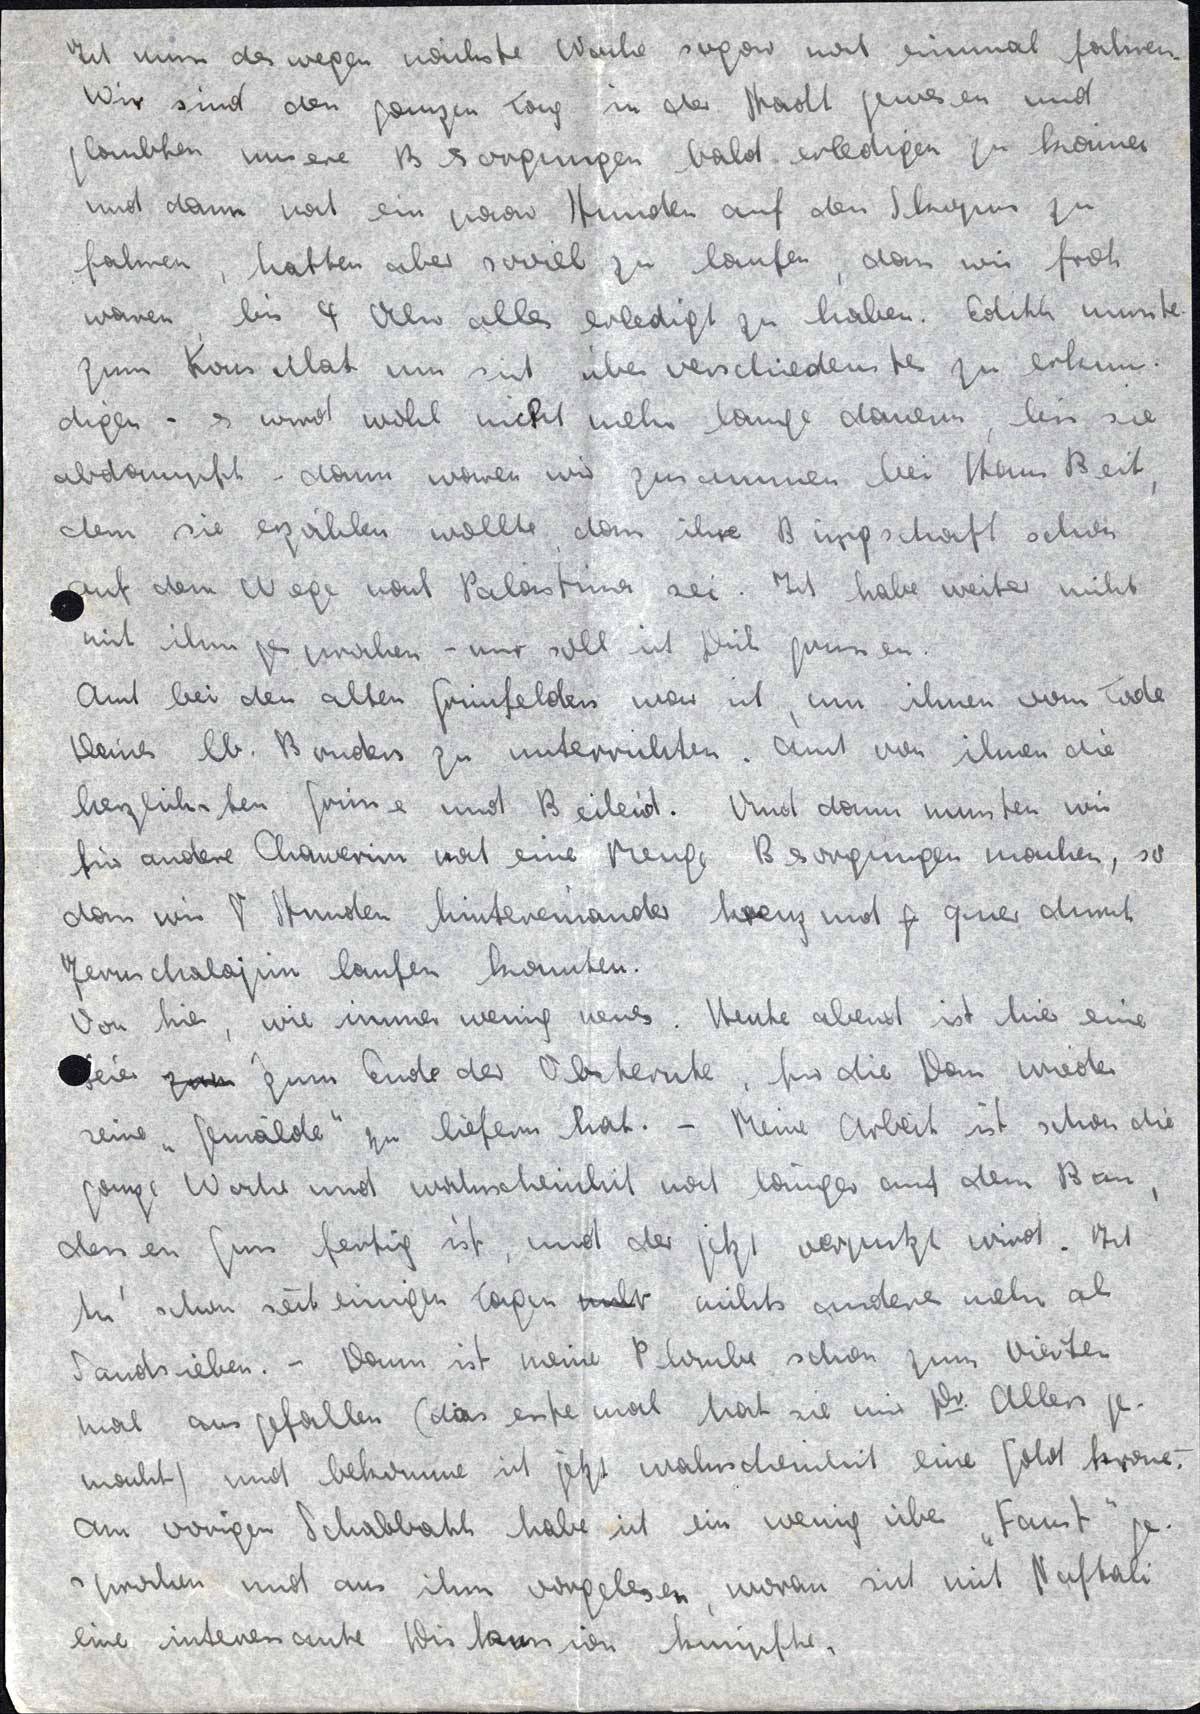 Ich muss deswegen nächste Woche sogar noch einmal fahren.
Wir sind den ganzen Tag in der Stadt gewesen und
glaubten unsere Besorgungen bald erledigen zu können
und dann noch ein paar Stunden auf den Skopus zu
fahren, hatten aber soviel zu laufen, dass wir froh
waren, bis 4 Uhr alles erledigt zu haben. Edith musste
zum Konsulat um sich über verschiedenstes zu erkun-
digen - es wird wohl nicht mehr lange dauern, bis sie
abdampft - dann waren wir zusammen bei Hans Beit,
dem sie erzählen wollte, dass ihre Bürgschaft schon
auf dem Wege nach Palästina sei. Ich habe weiter nicht
mit ihm gesprochen - nur soll ich Dich grüssen.
Auch bei den alten Grünfelders war ich, um ihnen vom Tode
Deines lb. Bruders zu unterrichten. Auch von ihnen die
herzlichsten Grüsse und Beileid. Und dann mussten wir
für andere Chawerim noch eine Menge Besorgungen machen, so
dass wir 8 Stunden hintereinander kreuz und quer durch
Jeruschalajim laufen konnten.
Von hier, wie immer wenig neues. Heute abend ist hier eine
Feier zum zum Ende der Obsternte, für die Dan wieder
seine „Gemälde" zu liefern hat. - Meine Arbeit ist schon die
ganze Woche und wahrscheinlich noch länger auf dem Bau,
dessen Guss fertig ist, und der jetzt verputzt wird. Ich
tu' schon seit einigen Tagen mehr nichts anderes mehr als
Sandsieben. - Dann ist meine Plombe schon zum vierten
mal ausgefallen (das erste mal hat sie mir Dr. Allers ge-
macht) und bekomme ich jetzt wahrscheinlich eine Goldkrone.-
Am vorigen Schabbath habe ich ein wenig über „Faust" ge-
sprochen und aus ihm vorgelesen, woran sich mit Naftali
eine interessante Diskussion knüpfte.